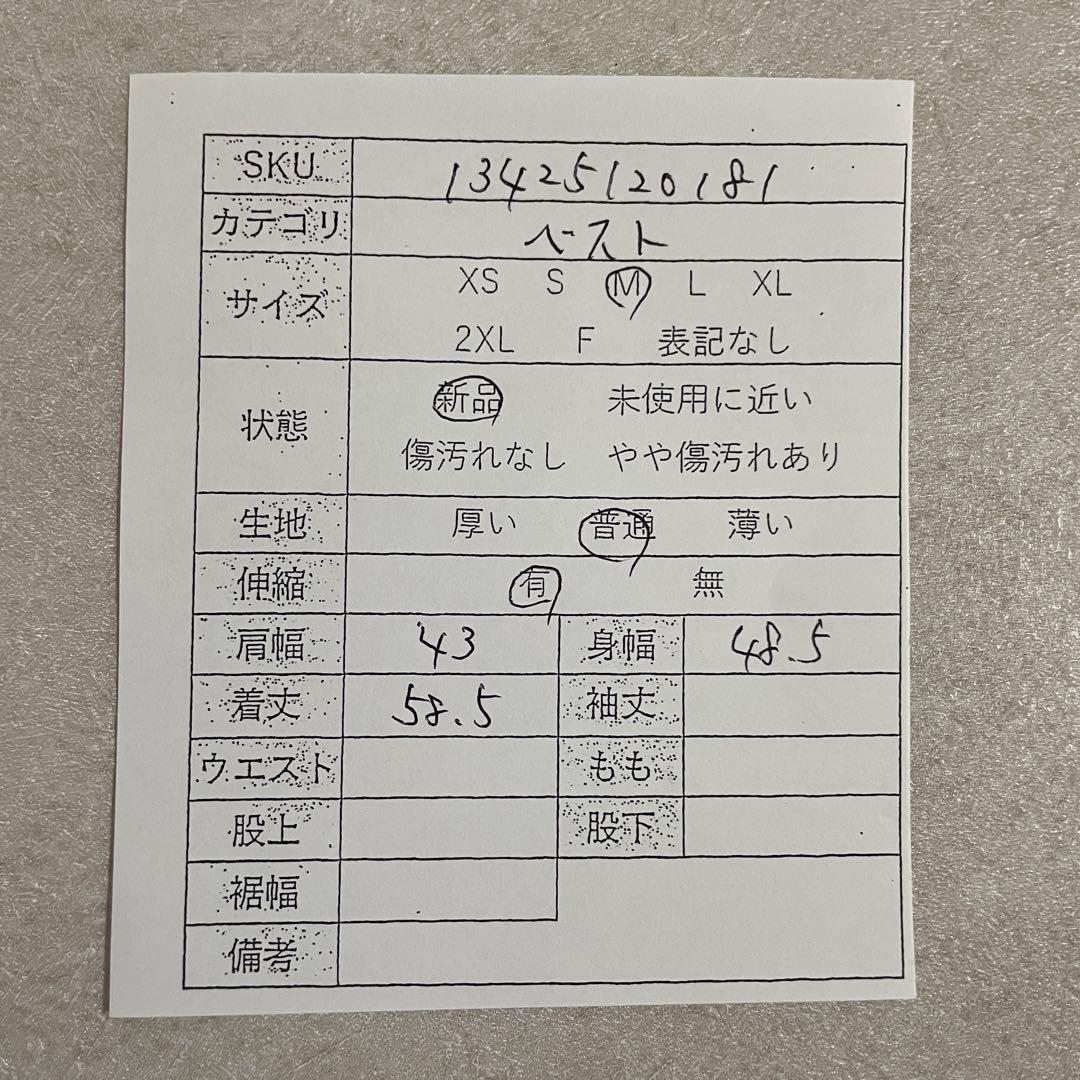 SKU 13425120181
カテゴリ ベスト
サイズ XS S M L XL
2XL F 表記なし
状態 新品 未使用に近い
傷汚れなし やや傷汚れあり
生地 厚い 普通 薄い
伸縮 有 無
肩幅 43 身幅 48.5
着丈 58.5 袖丈
ウエスト もも
股上 股下
裾幅
備考